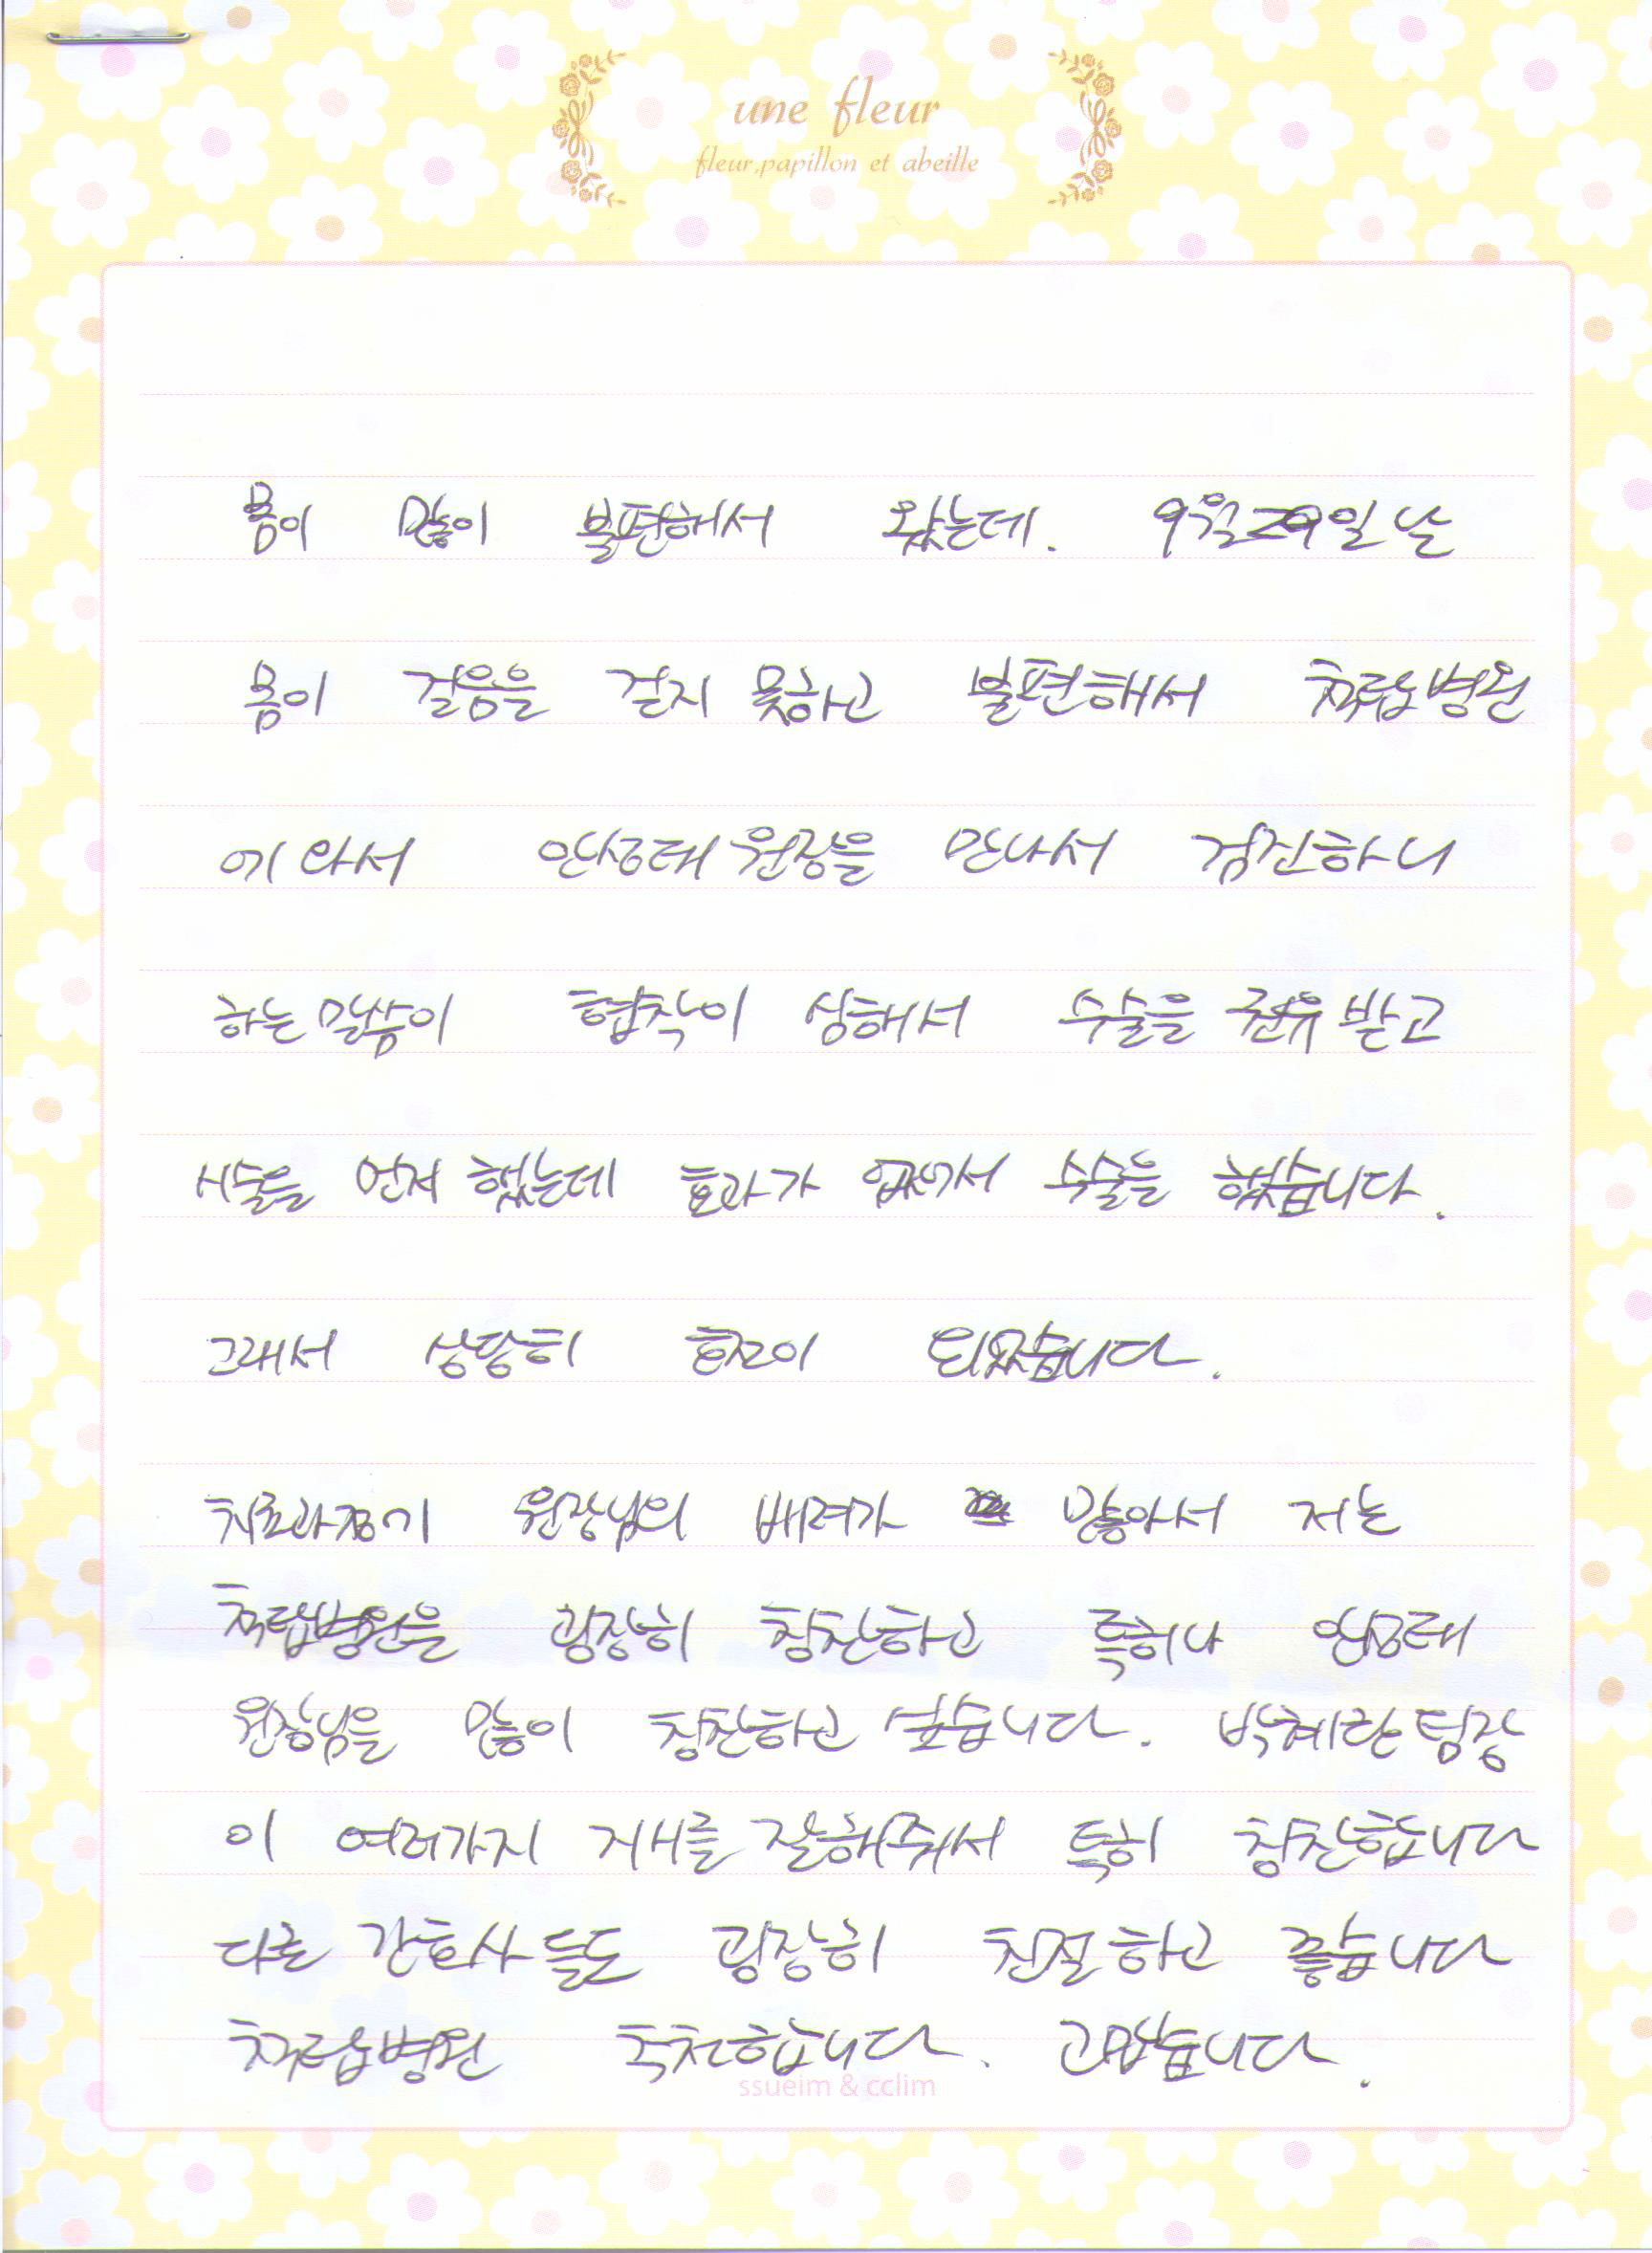 une fleur
fleur,papillon et abeille
몸이 많이 불편해서 왔는데. 9월29일날
몸이 걸음을 걷지 못하고 불편해서 척탑병원
에 와서 안성태 원장을 만나서 검진하니
하는 말씀이 협착이 심해서 수술을 권유 받고
시술을 먼저 했는데 효과가 없어서 수술을 했습니다.
그래서 상당히 호전이 되었습니다.
치료과정이 원장님의 배려가 많아서 저는
척탑병원을 굉장히 칭찬하고 특히나
원장님을 많이 칭찬하고 싶습니다. 박혜란 팀장
이 여러가지 거시를 잘해줘서 특히 칭찬합니다
다른 간호사들도 굉장히 친절하고 좋습니다
척탑병원 추천합니다. 고맙습니다.
ssueim & cclim